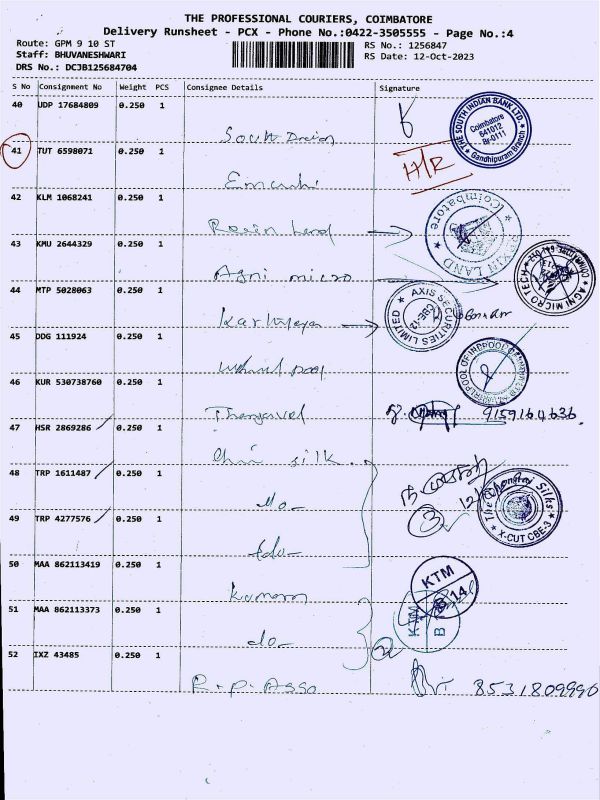 THE PROFESSIONAL COURIERS, COIMBATORE
Delivery Runsheet - PCX - Phone No.:0422-3505555 - Page No.:4
Route: GPM 9 10 ST
RS No.: 1256847
Staff: BHUVANESHWARI
RS Date: 12-Oct-2023
DRS No.: DCJB125684704
S No Consignment No Weight PCS Consignee Details Signature
40 UDP 17684809 0.250 1
South Indian
THE SOUTH INDIAN BANK LTD. Coimbatore 641012 Br.0111 Gandhipuram Branch
41 TUT 6598071 0.250 1
H/R
42 KLM 1068241 0.250 1
Rexin Land
Coimbatore REXIN LAND
43 KMU 2644329 0.250 1
Agni micro
AGNI MICRO TECH
44 MTP 5028063 0.250 1
Karthikeyan
AXIS SECURITIES LIMITED CBE-12
45 DDG 111924 0.250 1
Whirlpool
46 KUR 530738760 0.250 1
Thangavel
9159164636.
47 HSR 2869286 0.250 1
silk
48 TRP 1611487 0.250 1
do-
3
The Chennai Silks X-CUT CBE-3
49 TRP 4277576 0.250 1
do-
50 MAA 862113419 0.250 1
KTM
B 14
51 MAA 862113373 0.250 1
do-
KTM
B
2
52 IXZ 43485 0.250 1
R.P. Asso
8531809990